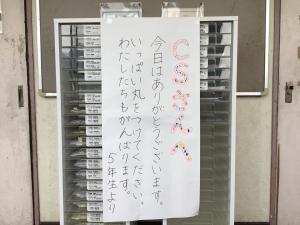 CSさんへ
今日はありがとうございます。
いっぱい丸をつけてください。
わたしたちもがんばります。
5年生より